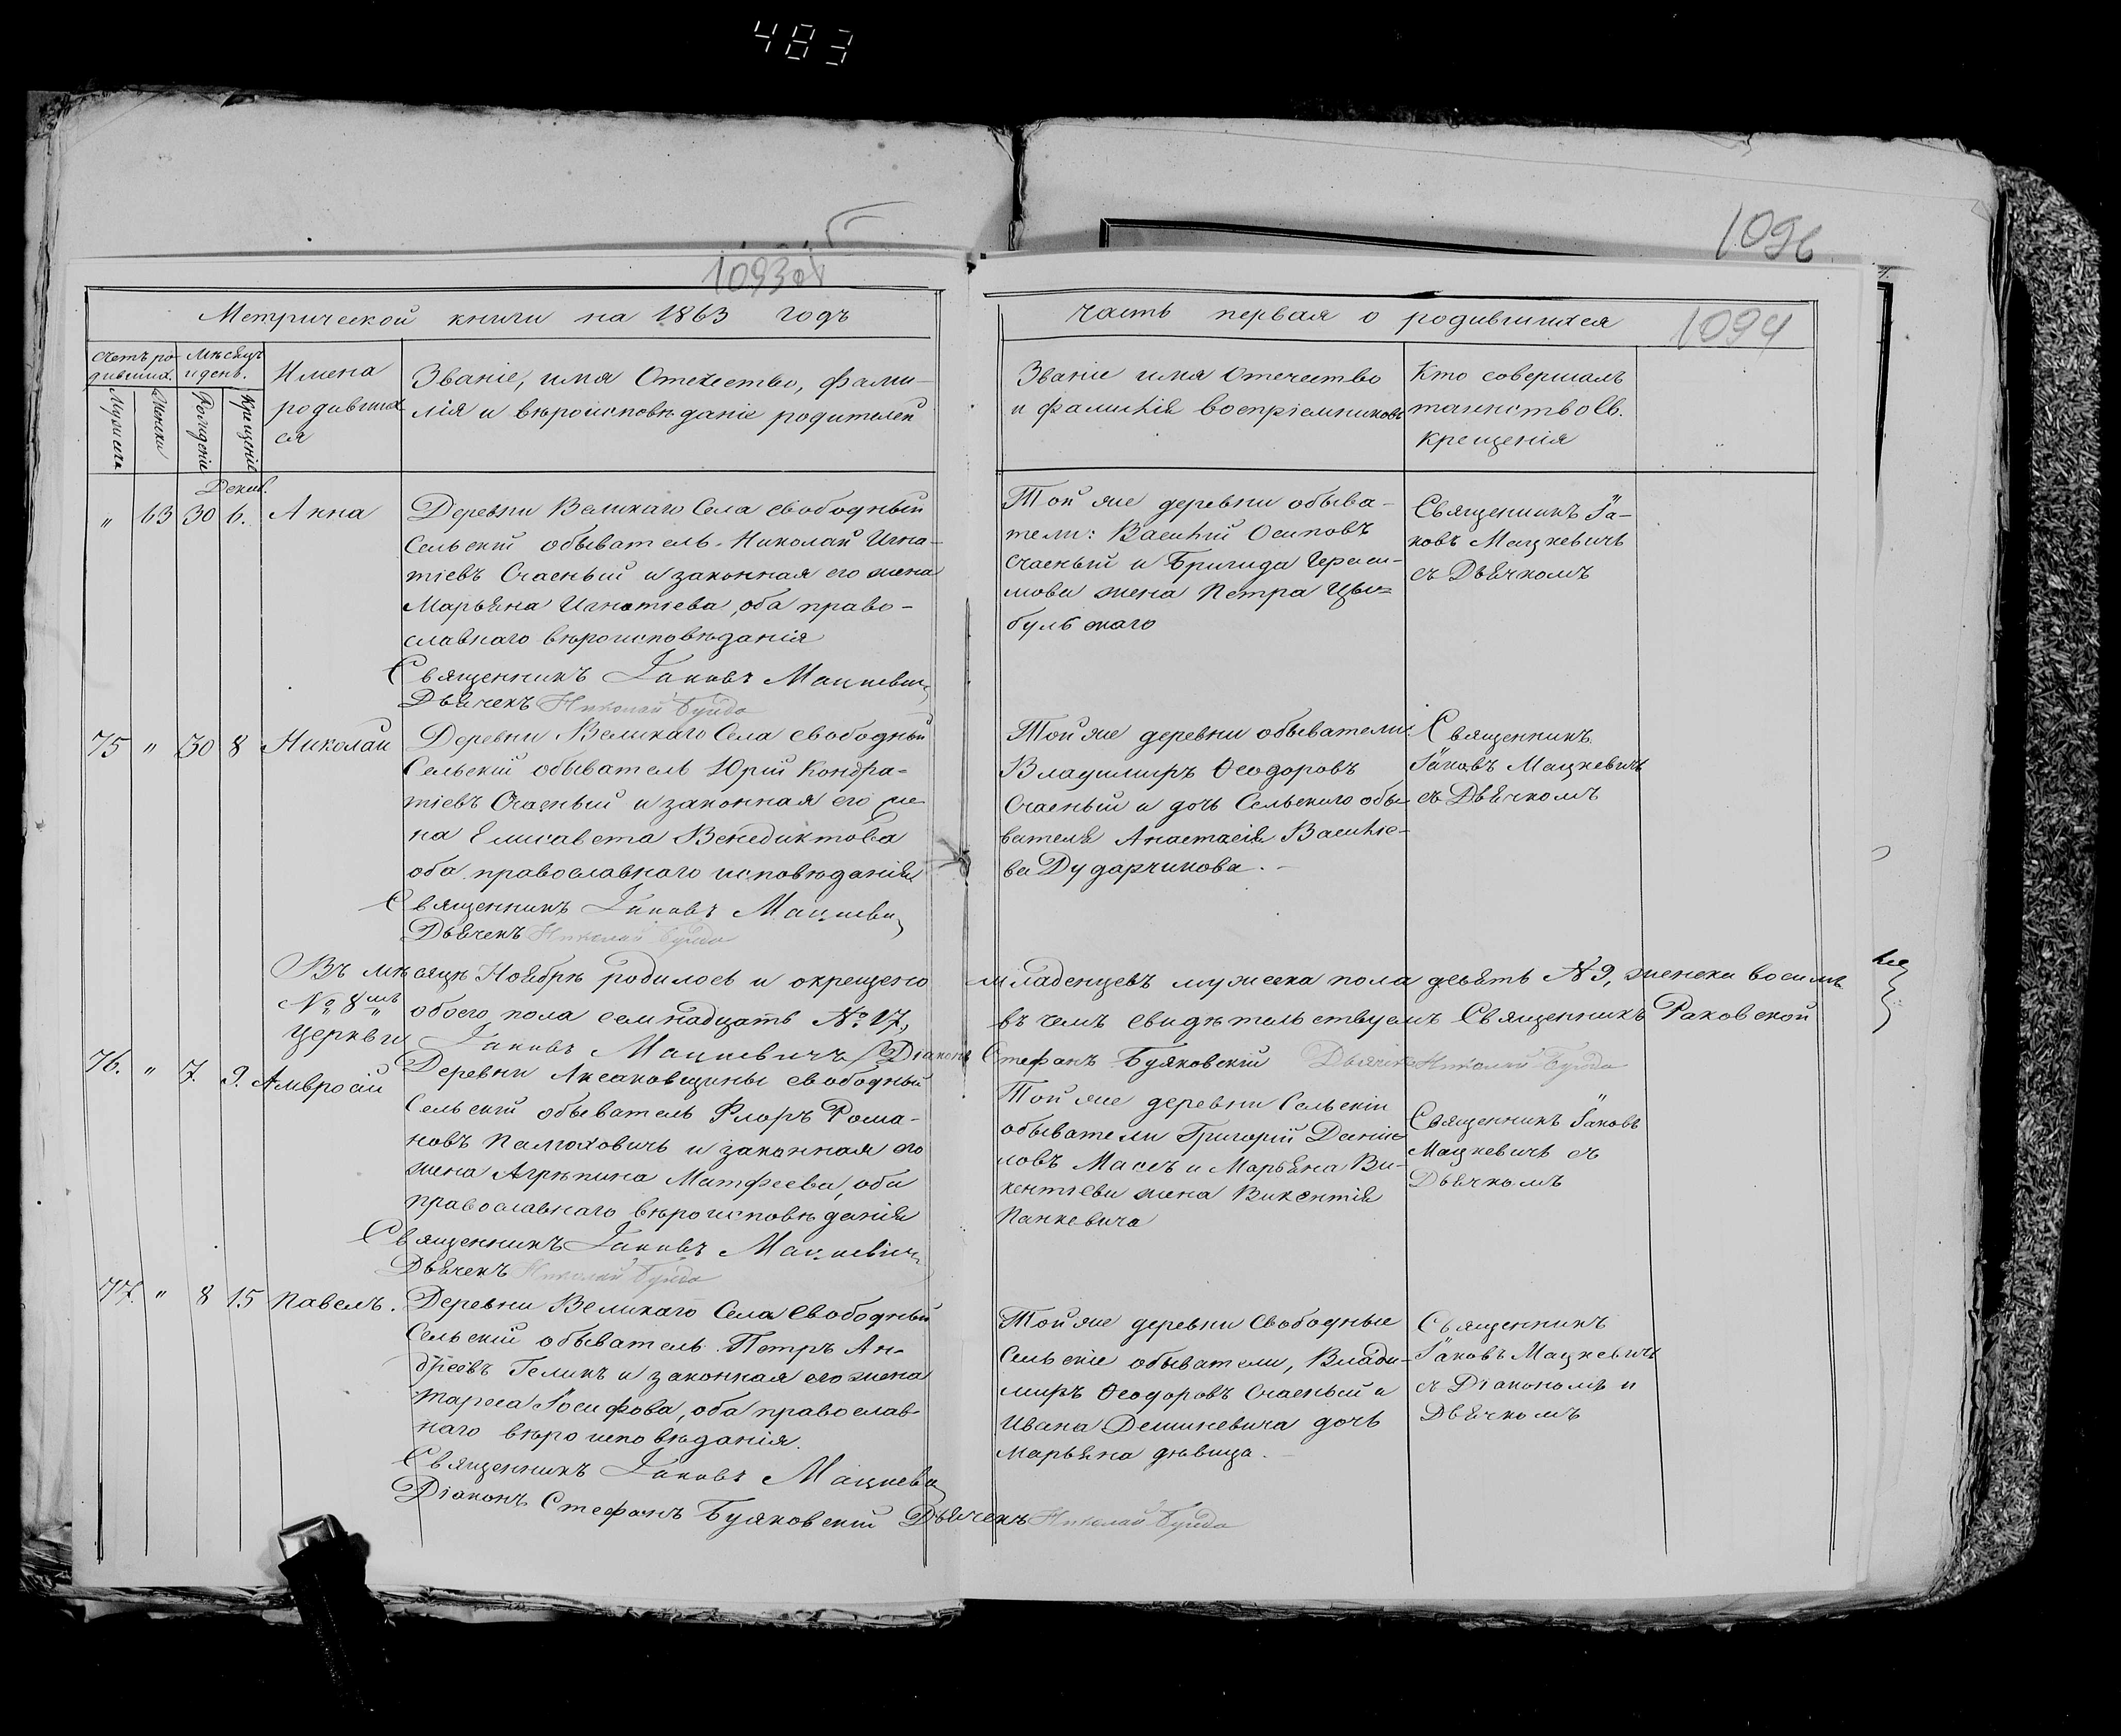 483
1096
1093об
1094
Метрической книги на 1863 годъ
часть первая о родившихся
счетъ ро-
дивших.
Мужеска
Женска
Мѣсяцъ
и день.
Рожденіе
Крещеніе
Имена
родивших
ся
Званіе, имя Отечество, фами-
лія и вѣроисповѣданіе родителей
Званіе имя Отечество
и фамилія воспріемниковъ
Кто совершалъ
таинство Св.
крещенія
Декаб.
" 63 30 6. Анна
Деревни Великаго Села свободный
Сельскій обыватель Николай Игна-
тіевъ Счасный и законная его жена
Марьяна Игнатіева, оба право-
славнаго вѣроисповѣданія
Священникъ Іаковъ Мацкевич
Дьячекъ Николай Буйдо
Той же деревни обыва-
тели: Василій Осиповъ
Счасный и Бригида Гераси-
мова жена Петра Цы-
бульскаго
Священникъ Іа-
ковъ Мацкевичъ
съ Дьячкомъ
75 " 30 8 Николай
Деревни Великаго Села свободный
Сельскій обыватель Юрій Кондра-
тіевъ Счасный и законная его же
на Елисавета Венедиктова
оба православнаго исповѣданія
Священникъ Іаковъ Мацкевич
Дьячекъ Николай Буйдо
Той же деревни обыватели:
Владимиръ Ѳеодоровъ
Счасный и дочь Сельскаго обы
вателя Анастасія Василіе-
ва Дударчикова.
Священникъ
Іаковъ Мацкевичъ
съ Дьячкомъ
Въ мѣсяцѣ Ноябрѣ родилось и окрещено младенцевъ мужеска пола девять №9, женска восимъ
№ 8мъ обоего пола семнадцать № 17, въ чемъ свидѣтельствуемъ Священникъ Раковской
церкви Іаковъ Мацкевичъ Діаконъ Стефанъ Буяковскій Дьячекъ Николай Буйдо
76. " 7. 9. Амвросій
Деревни Аксаковщины свободный
Сельскій обыватель Флоръ Рома-
новъ Памоховичъ и законная его
жена Агрѣпина Матфеева, оба
православнаго вѣроисповѣданія
Священникъ Іаковъ Мацкевич
Дьячекъ Николай Буйдо
Той же деревни Сельскіи
обыватели Григорій Даніи-
ловъ Масъ и Марьяна Ви-
кентіева жена Викентія
Панкевича
Священникъ Іаковъ
Мацкевичъ съ
Дьячкомъ
77. " 8 15 Павелъ.
Деревни Великаго Села Свободный
Сельскій обыватель Петръ Ан-
дреевъ Гелинъ и законная его жена
Тареса Іосифова, оба православ-
наго вѣроисповѣданія.
Священникъ Іаковъ Мацкевич
Діаконъ Стефанъ Буяковскій Дьячекъ Николай Буйдо
Той же деревни Свободные
Сельскіе обыватели, Влади-
миръ Ѳеодоровъ Счасный и
Ивана Демшевича дочь
Марьяна дѣвица.
Священникъ
Іаковъ Мацкевичъ
съ Діакономъ и
Дьячкомъ